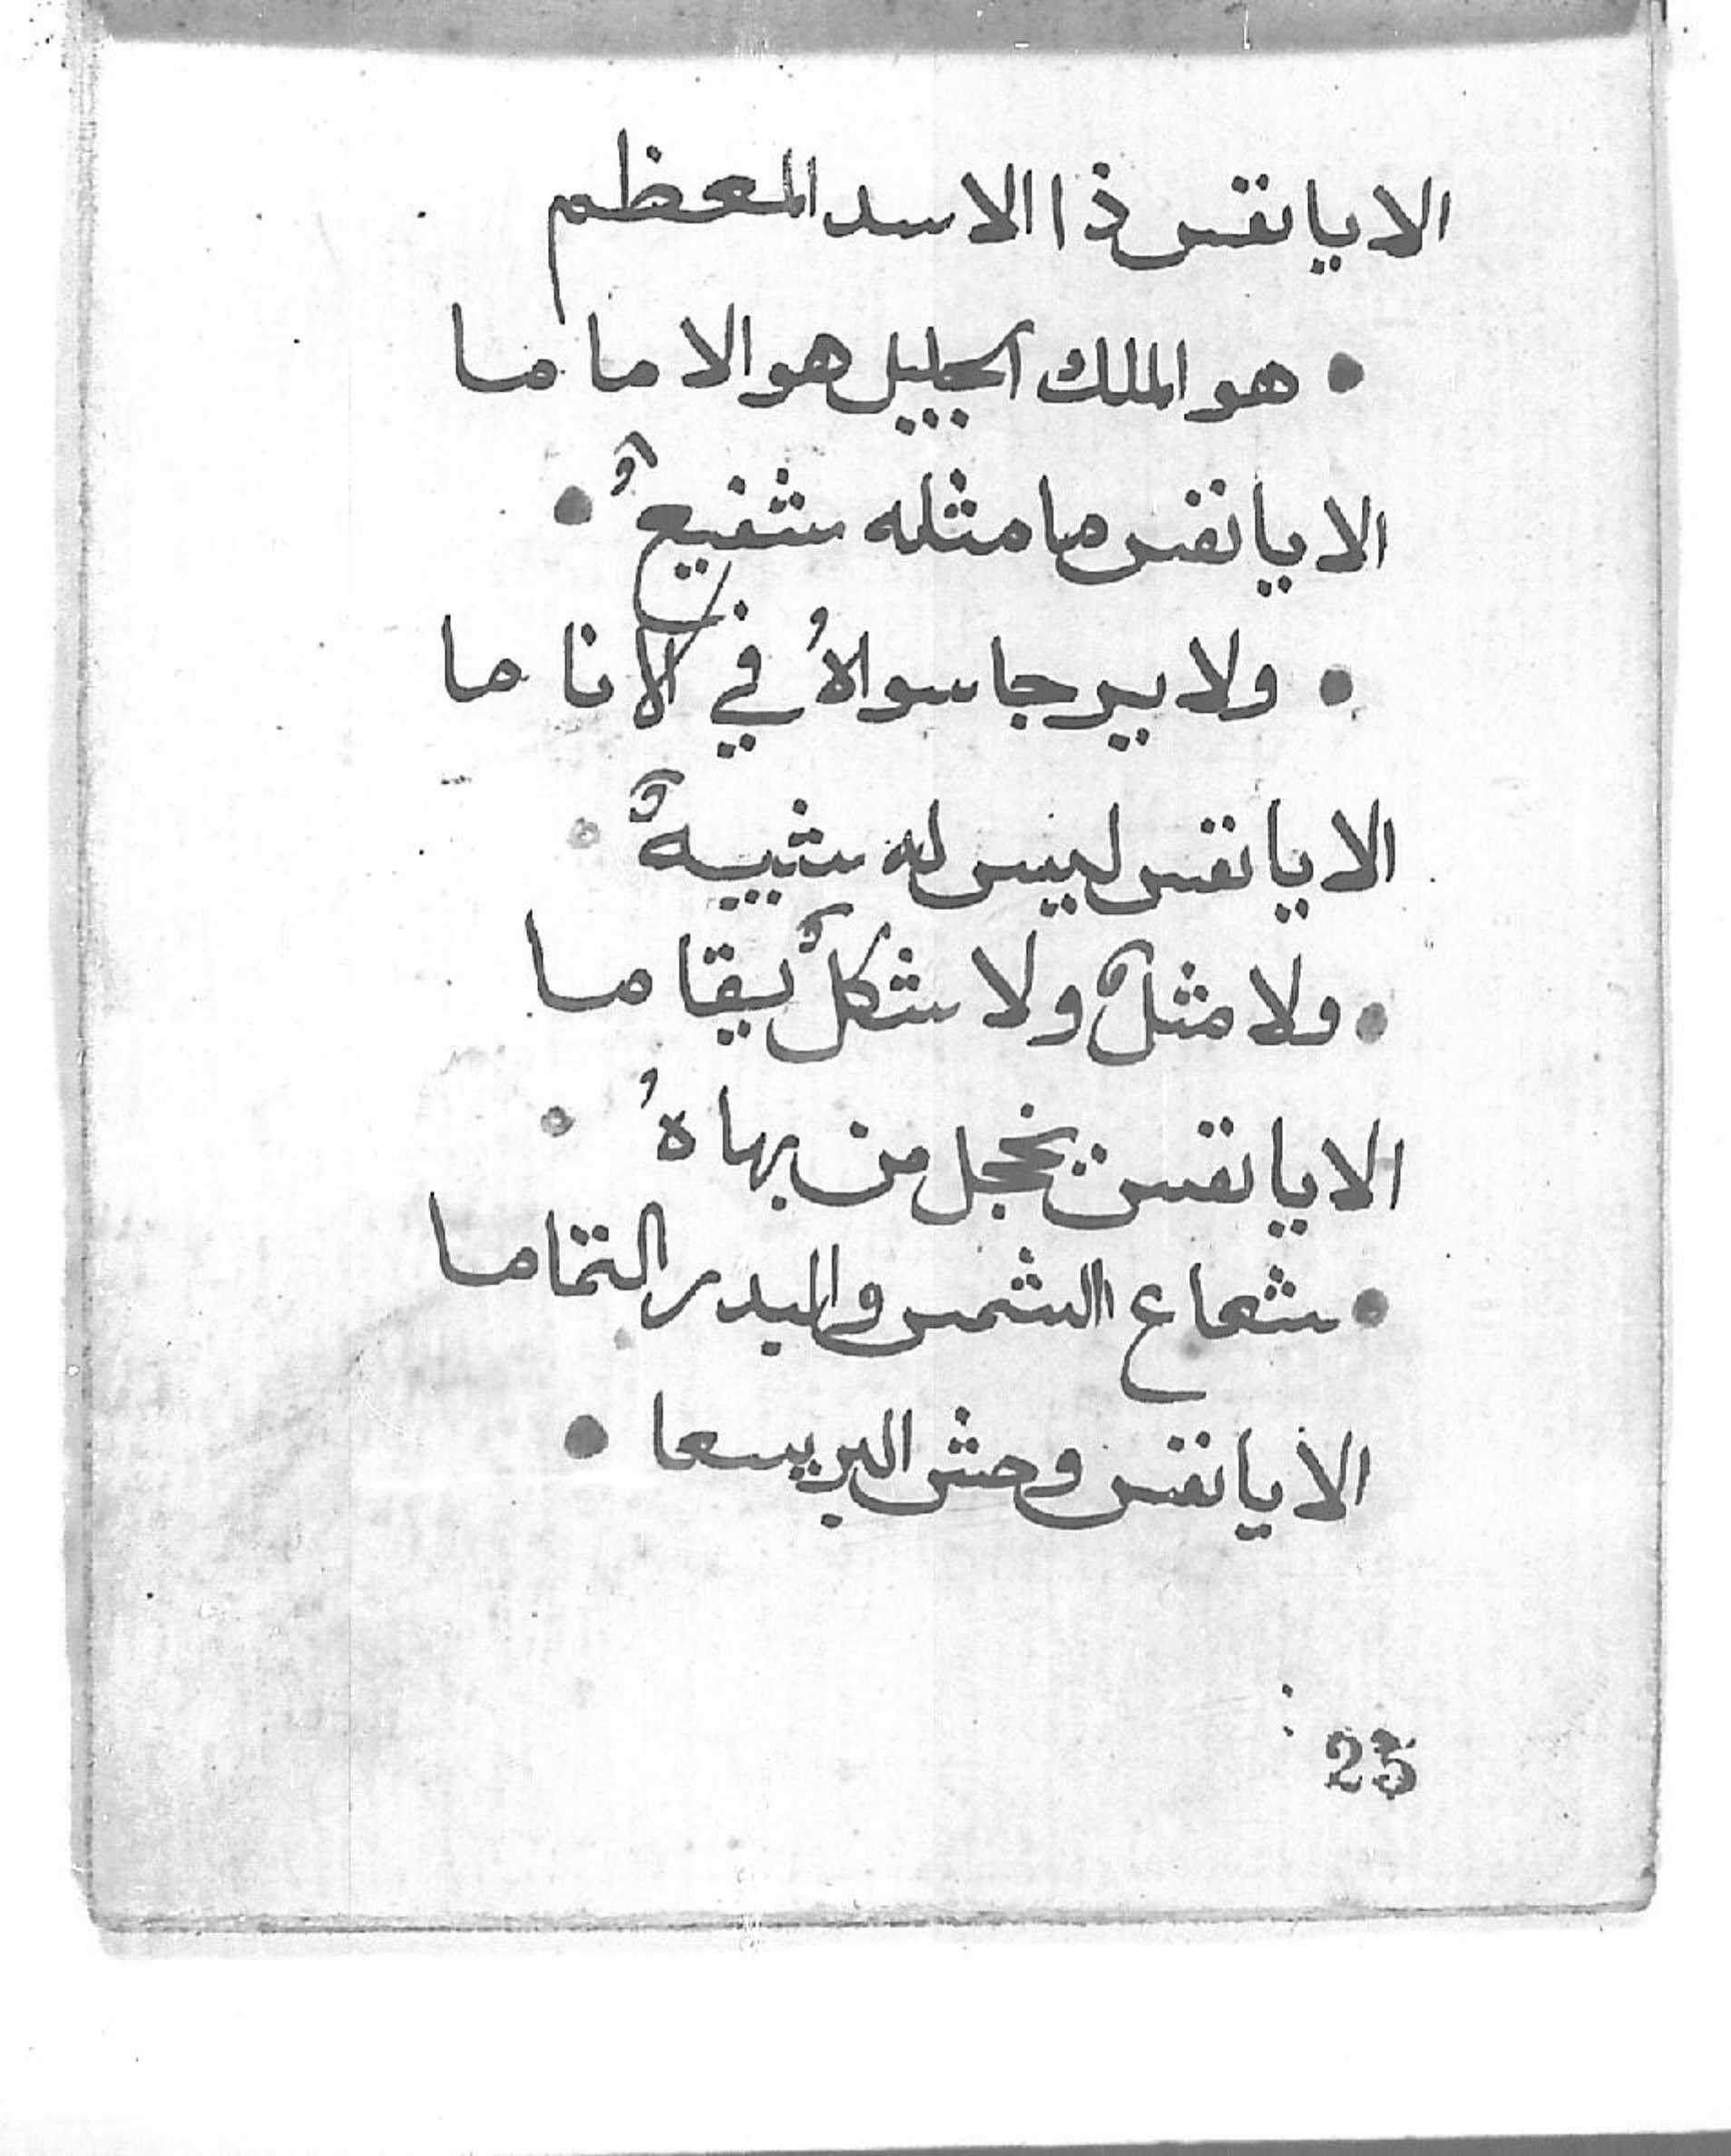 الا يا نفس ذا الاسد المعظم
• هو الملك الجليل هو الاماما
الا يا نفس ما مثله شفيعٌ •
• ولا يرجا سواهُ في الاناما
الا يا نفس ليس له شبيهٌ •
• ولا مثلٌ ولا شكلٌ يقاما
الا يا نفس يخجل من بهاهُ •
• شعاع الشمس والبدر التماما
الا يا نفس وحش البر يسعا •
25